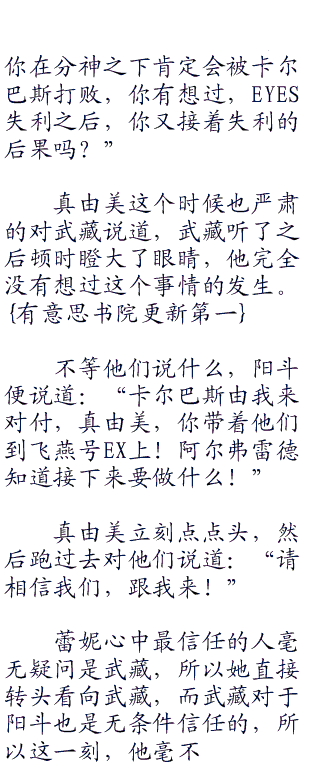 你在分神之下肯定会被卡尔
巴斯打败，你有想过，EYES
失利之后，你又接着失利的
后果吗？”
真由美这个时候也严肃
的对武藏说道，武藏听了之
后顿时瞪大了眼睛，他完全
没有想过这个事情的发生。
{有意思书院更新第一}
不等他们说什么，阳斗
便说道：“卡尔巴斯由我来
对付，真由美，你带着他们
到飞燕号EX上！阿尔弗雷德
知道接下来要做什么！”
真由美立刻点点头，然
后跑过去对他们说道：“请
相信我们，跟我来！”
蕾妮心中最信任的人毫
无疑问是武藏，所以她直接
转头看向武藏，而武藏对于
阳斗也是无条件信任的，所
以这一刻，他毫不